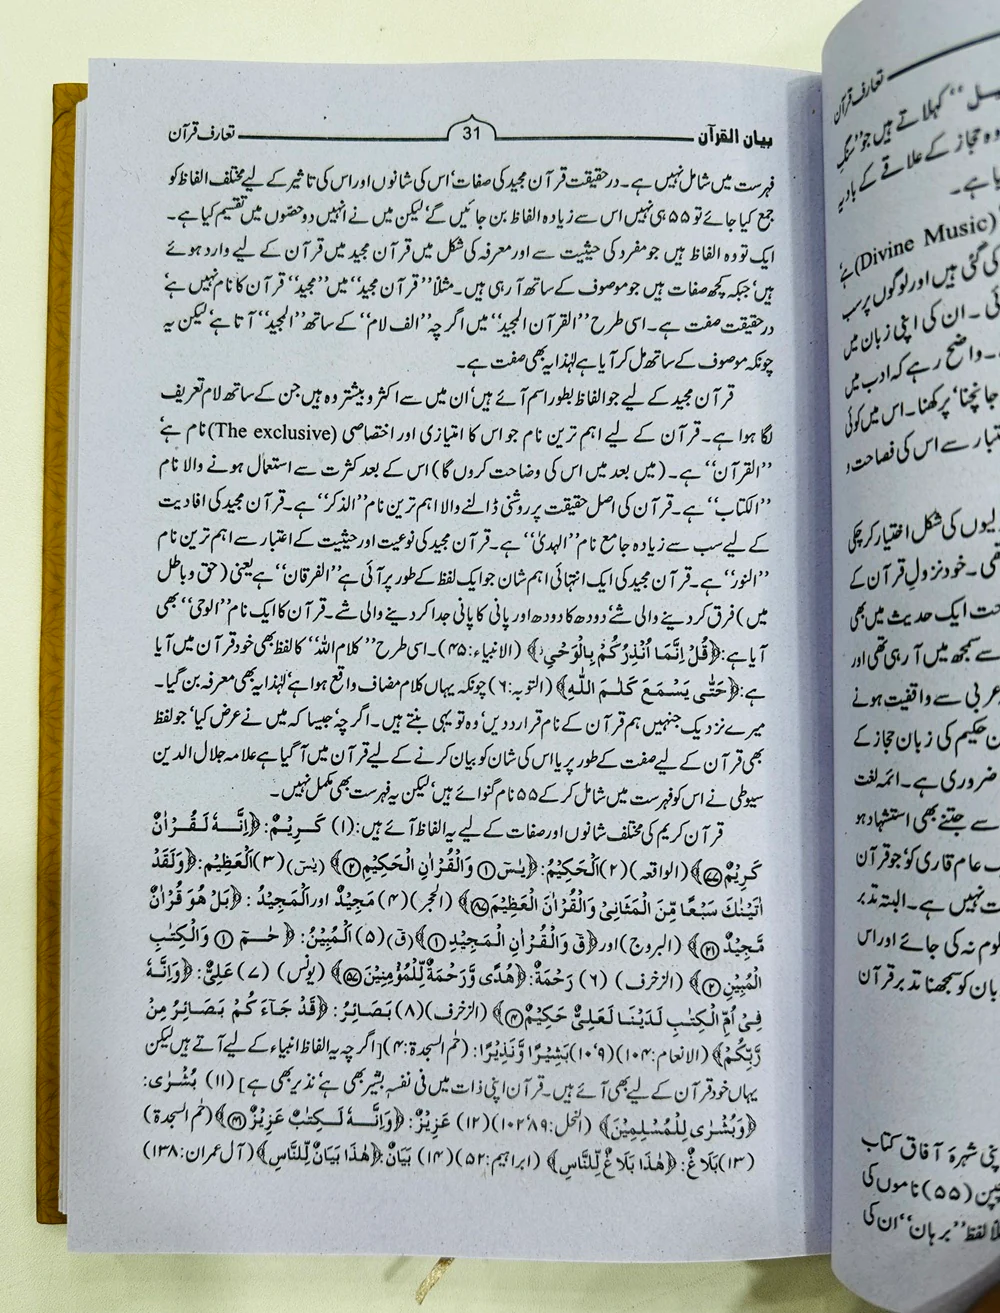 بیان القرآن
31
تعارف قرآن
فہرست میں شامل نہیں ہے۔ درحقیقت قرآن مجید کی صفات' اس کی شانوں اور اس کی تاثیر کے لیے مختلف الفاظ کو
جمع کیا جائے تو ۵۵ ہی نہیں اس سے زیادہ الفاظ بن جائیں گے' لیکن میں نے انہیں دو حصّوں میں تقسیم کیا ہے۔
ایک تو وہ الفاظ ہیں جو مفرد کی حیثیت سے اور معرفہ کی شکل میں قرآن مجید میں قرآن کے لیے وارد ہوئے
ہیں' جبکہ کچھ صفات ہیں جو موصوف کے ساتھ آ رہی ہیں۔ مثلاً ''قرآن مجید'' میں ''مجید'' قرآن کا نام نہیں ہے
درحقیقت صفت ہے۔ اسی طرح ''القرآن المجید'' میں اگرچہ ''الف لام'' کے ساتھ ''المجید'' آتا ہے' لیکن یہ
چونکہ موصوف کے ساتھ مل کر آیا ہے لہٰذا یہ بھی صفت ہے۔
قرآن مجید کے لیے جو الفاظ بطور اسم آئے ہیں' ان میں سے اکثر و بیشتر وہ ہیں جن کے ساتھ لام تعریف
لگا ہوا ہے۔ قرآن کے لیے اہم ترین نام جو اس کا امتیازی اور اختصاصی (The exclusive) نام ہے'
''القرآن'' ہے۔ (میں بعد میں اس کی وضاحت کروں گا) اس کے بعد کثرت سے استعمال ہونے والا نام
''الکتاب'' ہے۔ قرآن کی اصل حقیقت پر روشنی ڈالنے والا اہم ترین نام ''الذکر'' ہے۔ قرآن مجید کی افادیت
کے لیے سب سے زیادہ جامع نام ''الہدیٰ'' ہے۔ قرآن مجید کی نوعیت اور حیثیت کے اعتبار سے اہم ترین نام
''النور'' ہے۔ قرآن مجید کی ایک انتہائی اہم شان جو ایک لفظ کے طور پر آئی ہے ''الفرقان'' ہے یعنی (حق و باطل
میں) فرق کر دینے والی شے' دودھ کا دودھ اور پانی کا پانی جدا کر دینے والی شے۔ قرآن کا ایک نام ''الوحی'' بھی
آیا ہے: ﴿قُلْ اِنَّمَا اُنْذِرُكُمْ بِالْوَحْيِ﴾ (الانبیاء: ۴۵)۔ اسی طرح ''کلام اللہ'' کا لفظ بھی خود قرآن میں آیا
ہے: ﴿حَتّٰى يَسْمَعَ كَلٰمَ اللّٰهِ﴾ (التوبہ: ۶) چونکہ یہاں کلام مضاف واقع ہوا ہے' لہٰذا یہ بھی معرفہ بن گیا۔
میرے نزدیک جنہیں ہم قرآن کے نام قرار دیں' وہ تو یہی بنتے ہیں۔ اگرچہ' جیسا کہ میں نے عرض کیا' جو لفظ
بھی قرآن کے لیے صفت کے طور پر یا اس کی شان کو بیان کرنے کے لیے قرآن میں آ گیا ہے علامہ جلال الدین
سیوطی نے اس کو فہرست میں شامل کر کے ۵۵ نام گنوائے ہیں' لیکن یہ فہرست بھی مکمل نہیں۔
قرآن کریم کی مختلف شانوں اور صفات کے لیے یہ الفاظ آئے ہیں: (۱) كَرِيْمٌ: ﴿اِنَّهٗ لَقُرْاٰنٌ
كَرِيْمٌ ۷۷﴾ (الواقعہ) (۲) اَلْحَكِيْمُ: ﴿يٰسٓ ۱ وَالْقُرْاٰنِ الْحَكِيْمِ ۲﴾ (یٰسٓ) (۳) اَلْعَظِيْم: ﴿وَلَقَدْ
اٰتَيْنٰكَ سَبْعًا مِّنَ الْمَثَانِيْ وَالْقُرْاٰنَ الْعَظِيْمَ ۸۷﴾ (الحجر) (۴) مَجِيْدٌ اور اَلْمَجِيْدُ: ﴿بَلْ هُوَ قُرْاٰنٌ
مَّجِيْدٌ ۲۱﴾ (البروج) اور ﴿قٓ وَالْقُرْاٰنِ الْمَجِيْدِ ۱﴾ (قٓ) (۵) اَلْمُبِيْنُ: ﴿حٰمٓ ۱ وَالْكِتٰبِ
الْمُبِيْنِ ۲﴾ (الزخرف) (۶) رَحْمَةٌ: ﴿هُدًى وَّرَحْمَةٌ لِّلْمُؤْمِنِيْنَ ۵۷﴾ (یونس) (۷) عَلِيٌّ: ﴿وَاِنَّهٗ
فِيْ اُمِّ الْكِتٰبِ لَدَيْنَا لَعَلِيٌّ حَكِيْمٌ ۴﴾ (الزخرف) (۸) بَصَائِرُ: ﴿قَدْ جَآءَكُمْ بَصَآئِرُ مِنْ
رَّبِّكُمْ﴾ (الانعام: ۱۰۴) (۹'۱۰) بَشِيْرًا وَّنَذِيْرًا: (حٰمٓ السجدۃ: ۴) [اگرچہ یہ الفاظ انبیاء کے لیے آتے ہیں لیکن
یہاں خود قرآن کے لیے بھی آئے ہیں۔ قرآن اپنی ذات میں فی نفسہٖ بشیر بھی ہے' نذیر بھی ہے] (۱۱) بُشْرٰى:
﴿وَبُشْرٰى لِلْمُسْلِمِيْنَ﴾ (النحل: ۸۹'۱۰۲) (۱۲) عَزِيْزٌ: ﴿وَاِنَّهٗ لَكِتٰبٌ عَزِيْزٌ ۴۱﴾ (حٰمٓ السجدۃ)
(۱۳) بَلَاغٌ: ﴿هٰذَا بَلٰغٌ لِّلنَّاسِ﴾ (ابراہیم: ۵۲) (۱۴) بَيَانٌ: ﴿هٰذَا بَيَانٌ لِّلنَّاسِ﴾ (آل عمران: ۱۳۸)
تعارف قرآن
کہلاتے ہیں جو ''سنگِ
وہ حجاز کے علاقے کے بادیہ
یا ہے۔
(Divine Music) ہے
کی گئی ہیں اور لوگوں پر سب
ئی۔ ان کی اپنی زبان میں
۔ واضح رہے کہ ادب میں
جانچنا' پرکھنا۔ اس میں کوئی
تبار سے اس کی فصاحت و
لیوں کی شکل اختیار کر چکی
تھی۔ خود نزولِ قرآن کے
حت ایک حدیث میں بھی
سے سمجھ میں آ رہی تھی اور
عربی سے واقفیت ہونے
ن حکیم کی زبان حجاز کے
ضروری ہے۔ ائمہ لغت
سے جتنے بھی استشہاد ہو
ب عام قاری کو' جو قرآن
ت نہیں ہے۔ البتہ تدبر
لوم نہ کی جائے اور اس
بان کو سمجھنا تدبر قرآن
پنی شہرۂ آفاق کتاب
چپن (۵۵) ناموں کی
لاً لفظ ''برہان'' ان کی